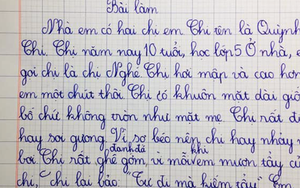 Bài làm
Nhà em có hai chị em Chị tên là Quỳnh
Chi. Chị năm nay 10 tuổi, học lớp 5 Ở nhà, e
gọi chị là chị Nghé. Chị hơi mập và cao hơn
em một chút thôi. Chị có khuôn mặt dài giố
bố chứ không tròn như mặt mẹ. Chị rất đ
hay soi gương. Vì sợ béo nên chị hay nhảy v
đanh đá khi
bơi Chị rất ghê gớm, vì mỗi em mượn tẩy củ
chị, chị lại bảo: "Tự đi mà kiếm tẩy" Em